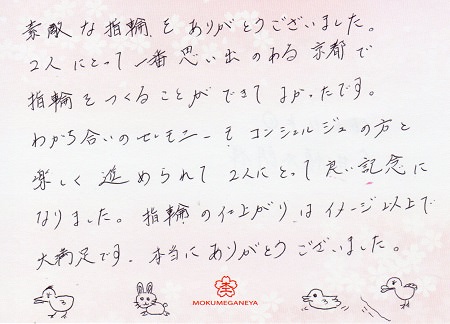 素敵な指輪をありがとうございました。
2人にとって一番思い出のある京都で
指輪をつくることができてよかったです。
わかち合いのセレモニーもコンシェルジュの方と
楽しく進められて2人にとって良い記念に
なりました。指輪の仕上がりはイメージ以上で
大満足です。本当にありがとうございました。
MOKUMEGANEYA